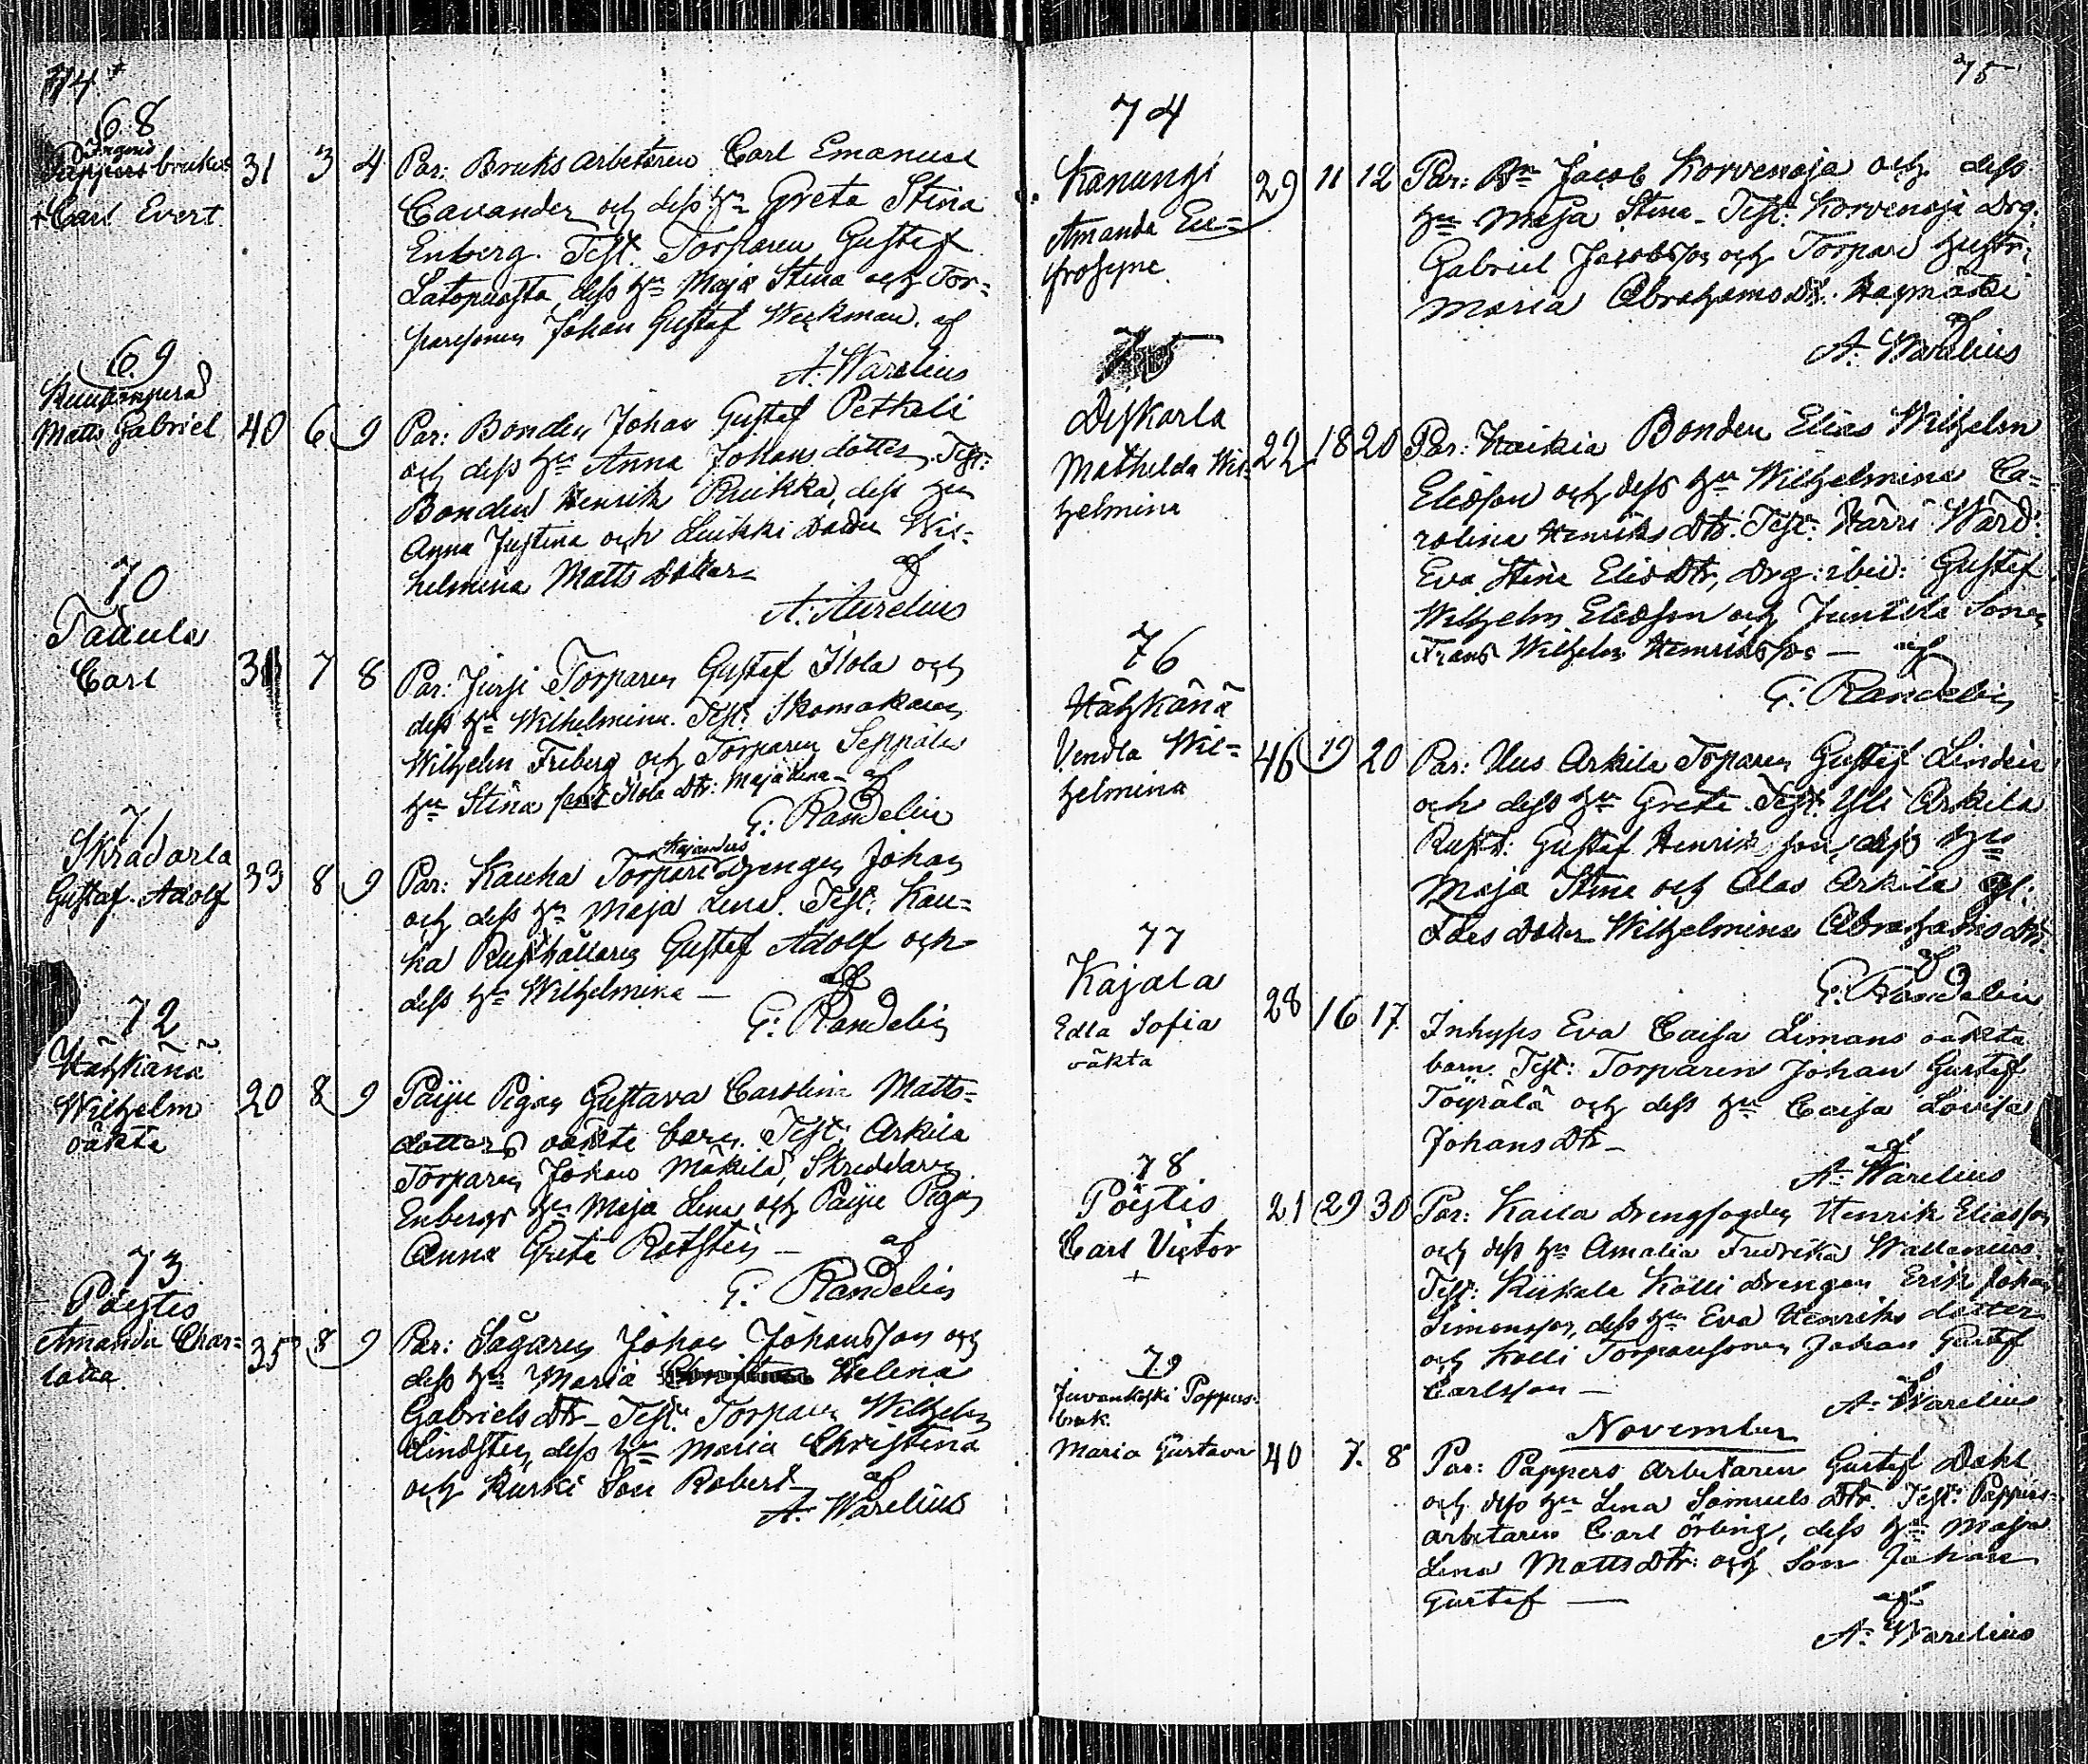 74
68
Pappersbruket
+ Carl Evert
31 3 4
Par: Bruks arbetaren Carl Emanuel
Cavander och dess Hu Greta Stina
Enberg. Test. Torparen Gustaf
Latopuosta, dess Hu Maja Stina och Tor=
paresonen Johan Gustaf Weckman. af
A. Warelius
69
Matts Gabriel
40 6 9
Par: Bonden Johan Gustaf Petheli
och dess Hu Anna Johans dotter. Test:
Bonden Henrik Ruikka, dess Hu
Anna Justina och Liukki Dotter Wil=
helmina Matts dotter af
A. Aurelius
70
Taaula
Carl
31 7 8
Par: Jursi Torparen Gustaf Ilola och
dess Hu Wilhelmina. Test: Skomakaren
Wilhelm Friberg och Torparen Seppälä
Hu Stina samt Ilola Dtr: Majalena - af
G: Randelin
71
Skradarla
Gustaf Adolf
33 8 9
Par: Kauha Torpare Drengen Johan
Kajanders
och dess Hu Maja Lena. Test: Kau=
ha Rusthållaren Gustaf Adolf och
dess Hu Wilhelmina — af
G: Randelin
72
Hätkänä
Wilhelm
oäkta
20 8 9
Paiju Pigan Gustava Carolina Matts=
dotters oäkta barn. Test: Arkila
Torparen Johan Mäkilä, Skreddaren
Enbergs Hu Maja Lena och Paiju Pigan
Anna Greta Rotsten — af
G: Randelin
73
Pöytis
Amanda Char=
lotta
35 8 9
Par: Sågaren Johan Johansson och
dess Hu Maria Helena
Gabriels Dtr - Test: Torparen Wilhelm
Lindsten, dess Hu Maria Christina
och Kurki Son Robert - af
A. Warelius
75
74
Kanungi
Amanda Eu=
frosyne
29 11 12
Par: Bn Jacob Korvenoja och dess
Hu Maja Stina - Test: Korvenoja Drg.
Gabriel Jacobsson och Torpare Hustr:
Maria Abrahams Dtr. Haymäki
af
A. Warelius
75
Diskarla
Mathilda Wil=
helmina
22 18 20
Par: Haikia Bonden Elias Wilhelm
Eliasson och dess Hu Wilhelmina Ca=
rolina Henriks Dtr. Test: Härri Wärd:
Eva Stina Elias Dtr, Drg: ibid: Gustaf
Wilhelm Eliasson och Junttila Sonen
Frans Wilhelm Henriksson — af
G: Randelin
76
Hätkänä
Vendla Wil=
helmina
46 19 20
Par: Uus Arkila Toparen Gustaf Linden
och dess Hu Greta. Test: Yli Arkila
Rusth: Gustaf Henriksson, dess Hu
Maja Stina och Alas Arkila
Dotter Wilhelmina Abrahams Dtr
af
G. Randelin
77
Kajala
Edla Sofia
oäkta
28 16 17
Inhyses Eva Caisa Limans oäkta
barn. Test: Torparen Johan Gustaf
Töyrälä och dess Hu Caisa Lovisa
Johans Dtr — af
A. Warelius
78
Pöytis
Carl Victor
+
21 29 30
Par: Kaila Drengfogden Henrik Eliasson
och dess Hu Amalia Fredrika Wallenius.
Test: Kiikala Kölli Drengen Erik Johan
Simonsson, dess Hu Eva Henriks dotter
och Kölli Torparesonen Johan Gustaf
Carlsson — af
A. Warelius
November
79
Juvankoski Pappers=
bruk.
Maria Gustava
40 7. 8
Par: Pappers arbetaren Gustaf Dahl
och dess Hu Lena Samuels Dtr. Test: Pappers=
arbetaren Carl Örling, dess Hu Maja
Lena Matts Dtr: och Son Johan
Gustaf — af
A. Warelius